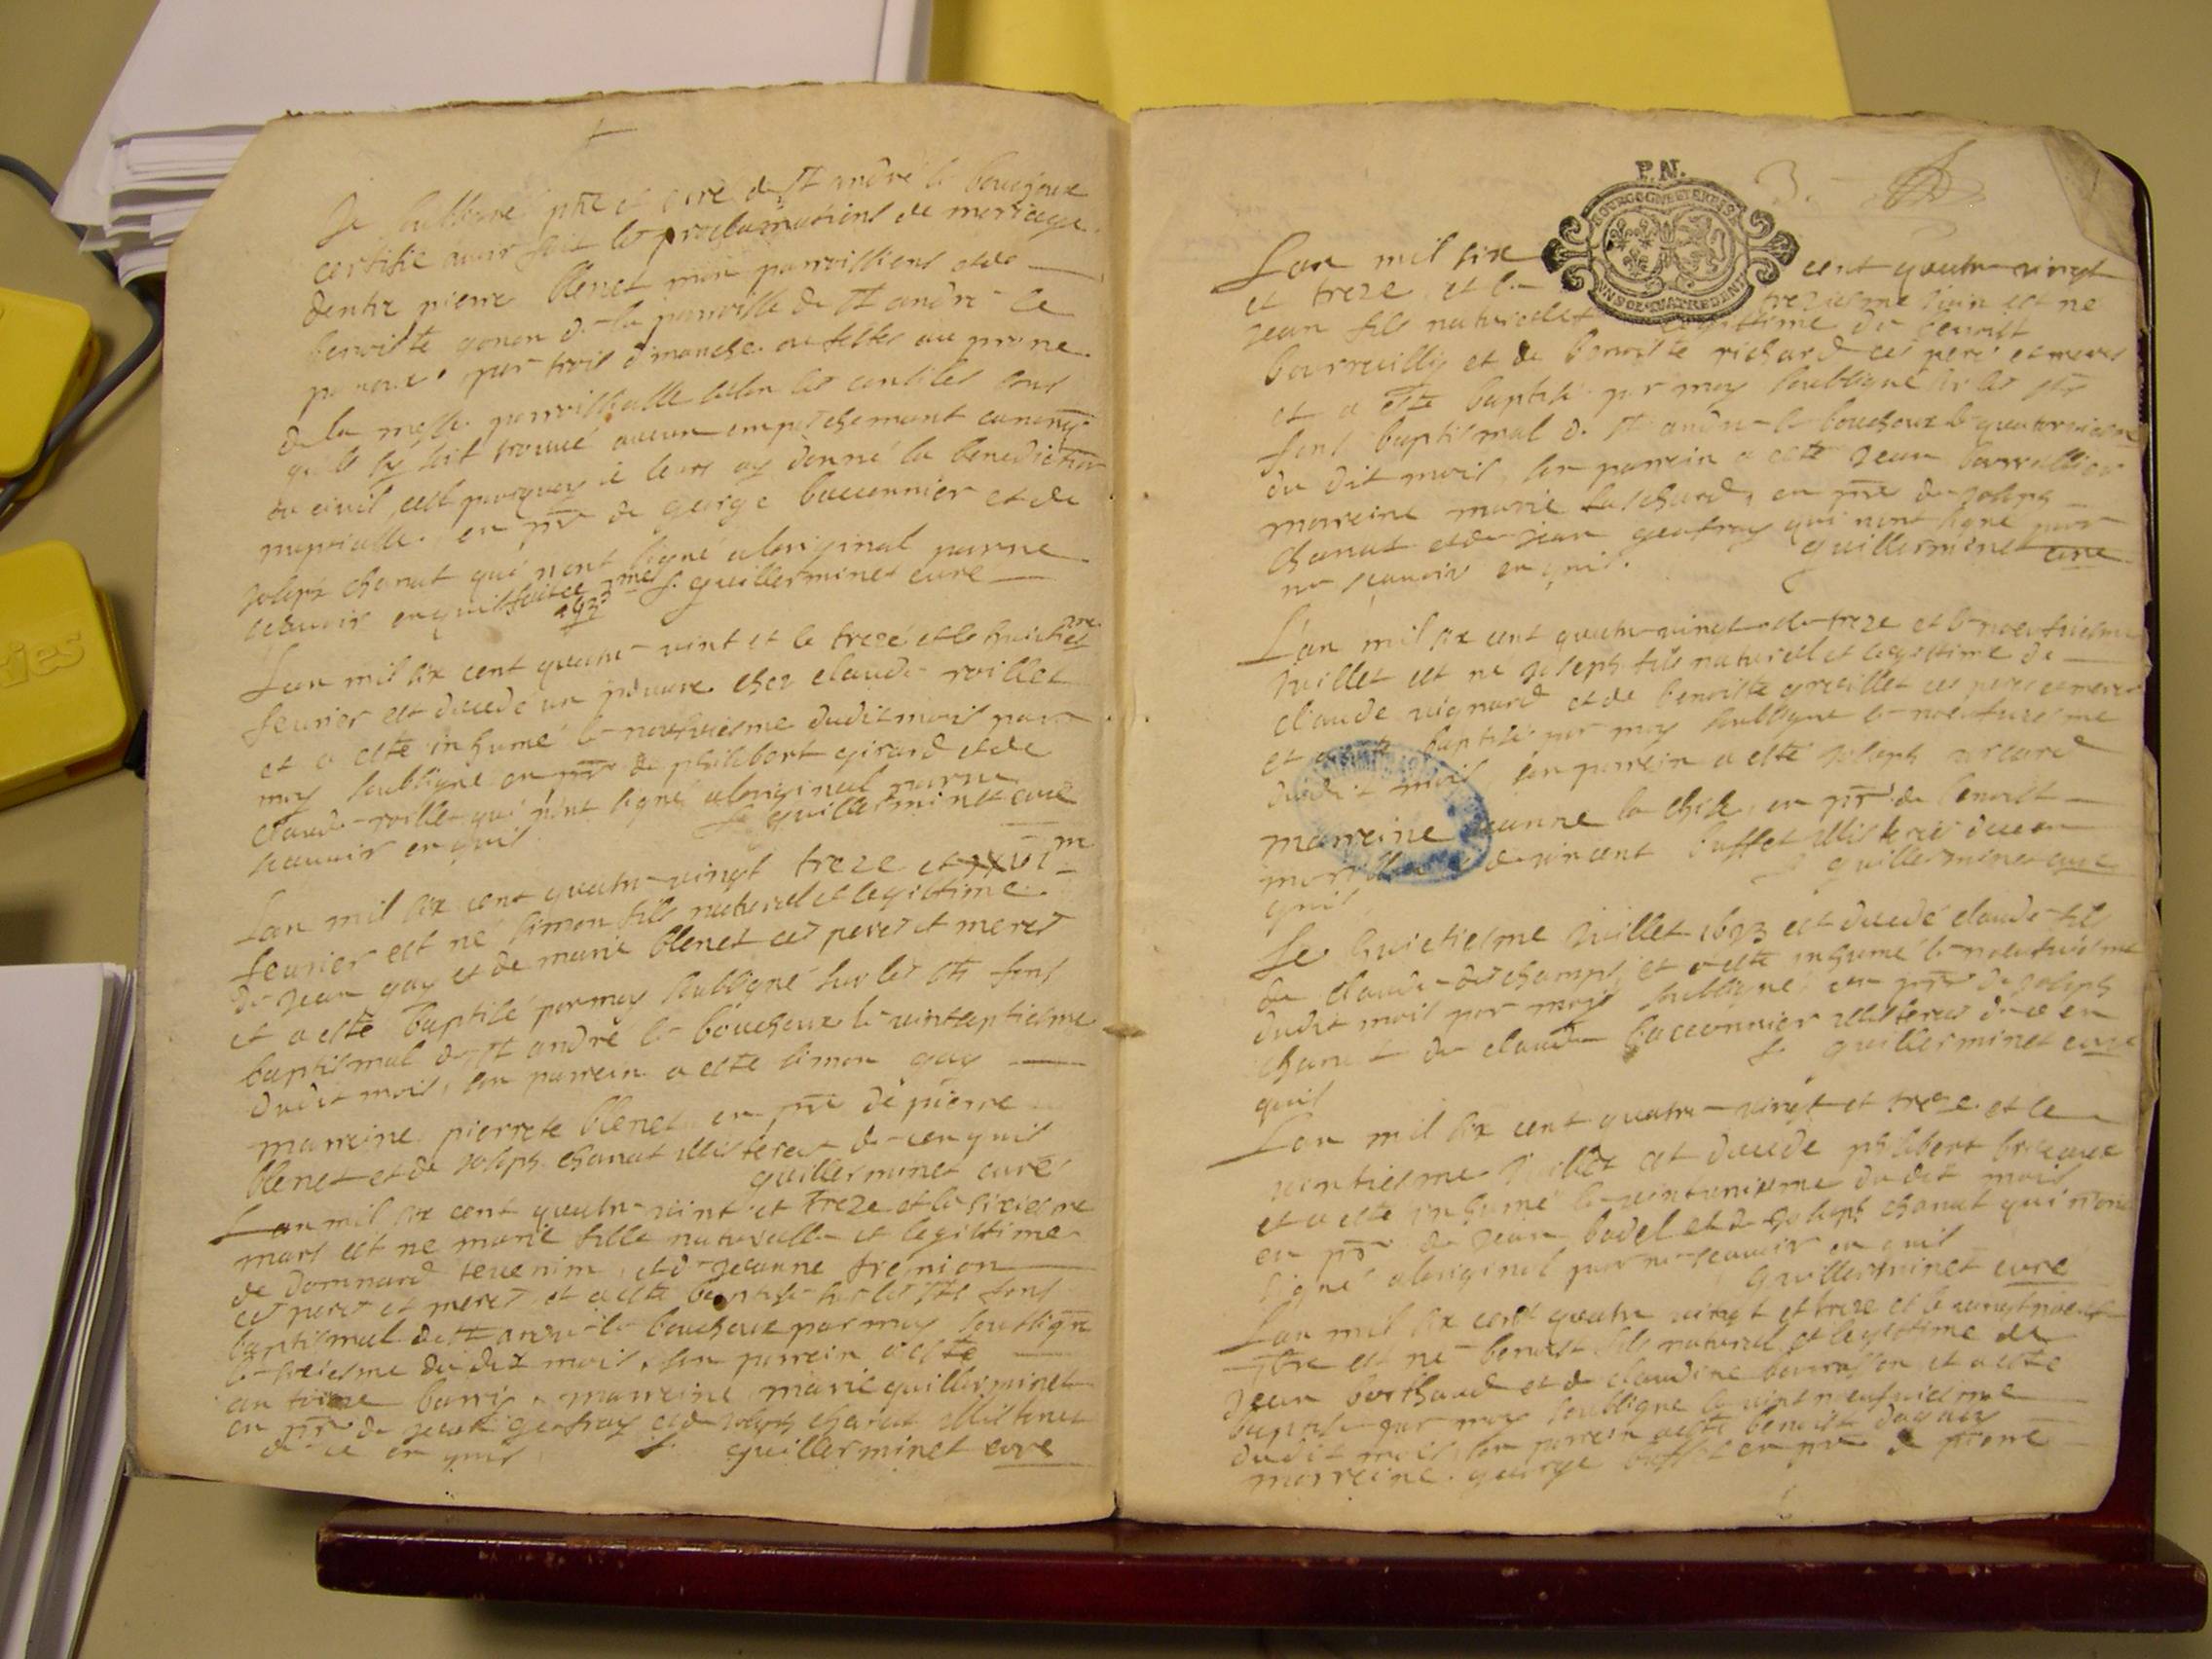 Je soubsigné pbre et curé de st andré le bouchoux
certifie avoir fait les proclamations de mariage
dentre pierre blenet mon parroissiens et de
benoiste gonon de la parroisse de st andré le
panoux par trois dimanches ou festes au prone
de la messe parroissialle selon les conciles sans
qu'il sy soit trouvé aucun empeschement canonq
ou civil cest pourquoy je leurs ay donné la benediction
nuptialle en pnce de george baconnier et de
joseph chanut qui nont signé a loriginal par ne
scavoir enquis J. guillerminet curé
1693
Lan mil six cent quatre vint et le treze et le huictiesme
fevrier est decedé un pauvre chez claude roillet
et a esté inhumé le noufviesme dudit mois par
moy soubsigné en pnce de philibert girard et de
claude roillet qui nont signé a loriginal par ne
scavoir enquis J. guillerminet curé
Lan mil six cent quatre vingt treze et
fevrier est né simon fils naturel et legistime
de jean gay et de marie blenet ces peres et meres
et a esté baptisé par moy soubsigné sur les sts fons
baptismal de st andré le bouchoux le vintseptiesme
dudit mois, son parrein a esté simon gay
marreine pierrete blenet en pnce de pierre
blenet et de joseph chanut illisteres de ce enquis
guillerminet curé
Lan mil six cent quatre vint et treze et le sixiesme
mars est ne marie fille naturelle et legistime
de domnard tevenin et de jeanne
ces peres et meres et a esté baptisé sur les sts fons
baptismal de st andré le bouchoux par moy soubsigné
le sixiesme du dit mois, son parrein a esté
antoine barri, marreine marie guillerminet
en pnce de jean geofray et de joseph chanut illisteres
de ce enquis J. guillerminet curé
P.N.
3.
Lan mil six cent quatre vingt
et treze et le treziesme juin est ne
jean fils naturel et legistime de benoist
bourreilly et de benoiste richard ces peres et meres
et a esté baptisé par moy soubsigné sur les sts
fons baptismal de st andré le bouchoux le quatorziesme
du dit mois, son parrein a esté jean
marreine marie en pnce de joseph
chanut et de jean geofray qui nont signé par
ne scavoir enquis. guillerminet curé
Lan mil six cent quatre vingt et treze et le noeufviesme
juillet est né joseph fils naturel et legistime de
claude vignard et de benoiste greillet ces peres et meres
et a esté baptisé par moy soubsigné le noeufviesme
dudit mois son parrein a esté joseph
marreine jeanne en pnce de benoist
de vincent buffet illisteres de ce en
quis J. guillerminet curé
Le huictiesme juillet 1693 est decedé claude fils
de claude deschamps et a esté inhumé le noeufviesme
dudit mois par moy soubsigné en pnce de joseph
chanut de claude baconnier illisteres de ce en
quis J. guillerminet curé
Lan mil six cent quatre vingt et treze et le
vintiesme juillet est decedé philibert
et a esté inhumé le vintuniesme du dit mois
en pnce de jean bodel et de joseph chanut qui nont
signé a loriginal par ne scavoir enquis
guillerminet curé
Lan mil six cent quatre vingt et treze et le vingtnoeuf
est né benoist fils naturel et legistime de
jean berthaud et de claudine et a esté
baptisé par moy soubsigné le vintneufviesme
dudit mois, son parrein a esté benoist
marreine george buffet en pnce de pierre